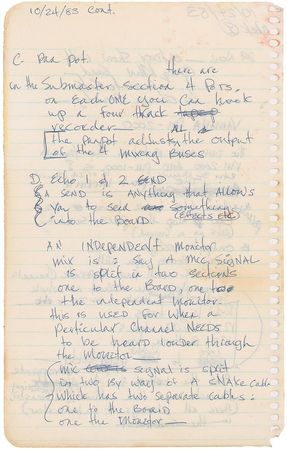 10/24/83 Cont.
C. Pan Pot.
there are
in the Submaster section 4 Pots,
on each ONE you can hook
up a four track
recorder — All
the panpot adjusts the output
of the 4 Mixing Buses
D. Echo 1 & 2 SEND
A SEND is ANything that Allows
you to send something
into the Board. (Effects etc)
AN INDEPENDENT Monitor
mix is: Say A mic SIGNAL
is split in two sections
one to the Board, one to
the independent monitor.
this is used for when a
Perticular Channel NEEDS
to be heard louder through
the Monitor —
mic signal is split
in two By way of A SNAke Cable
which has two separate cables:
one to the Board
one the Monitor —